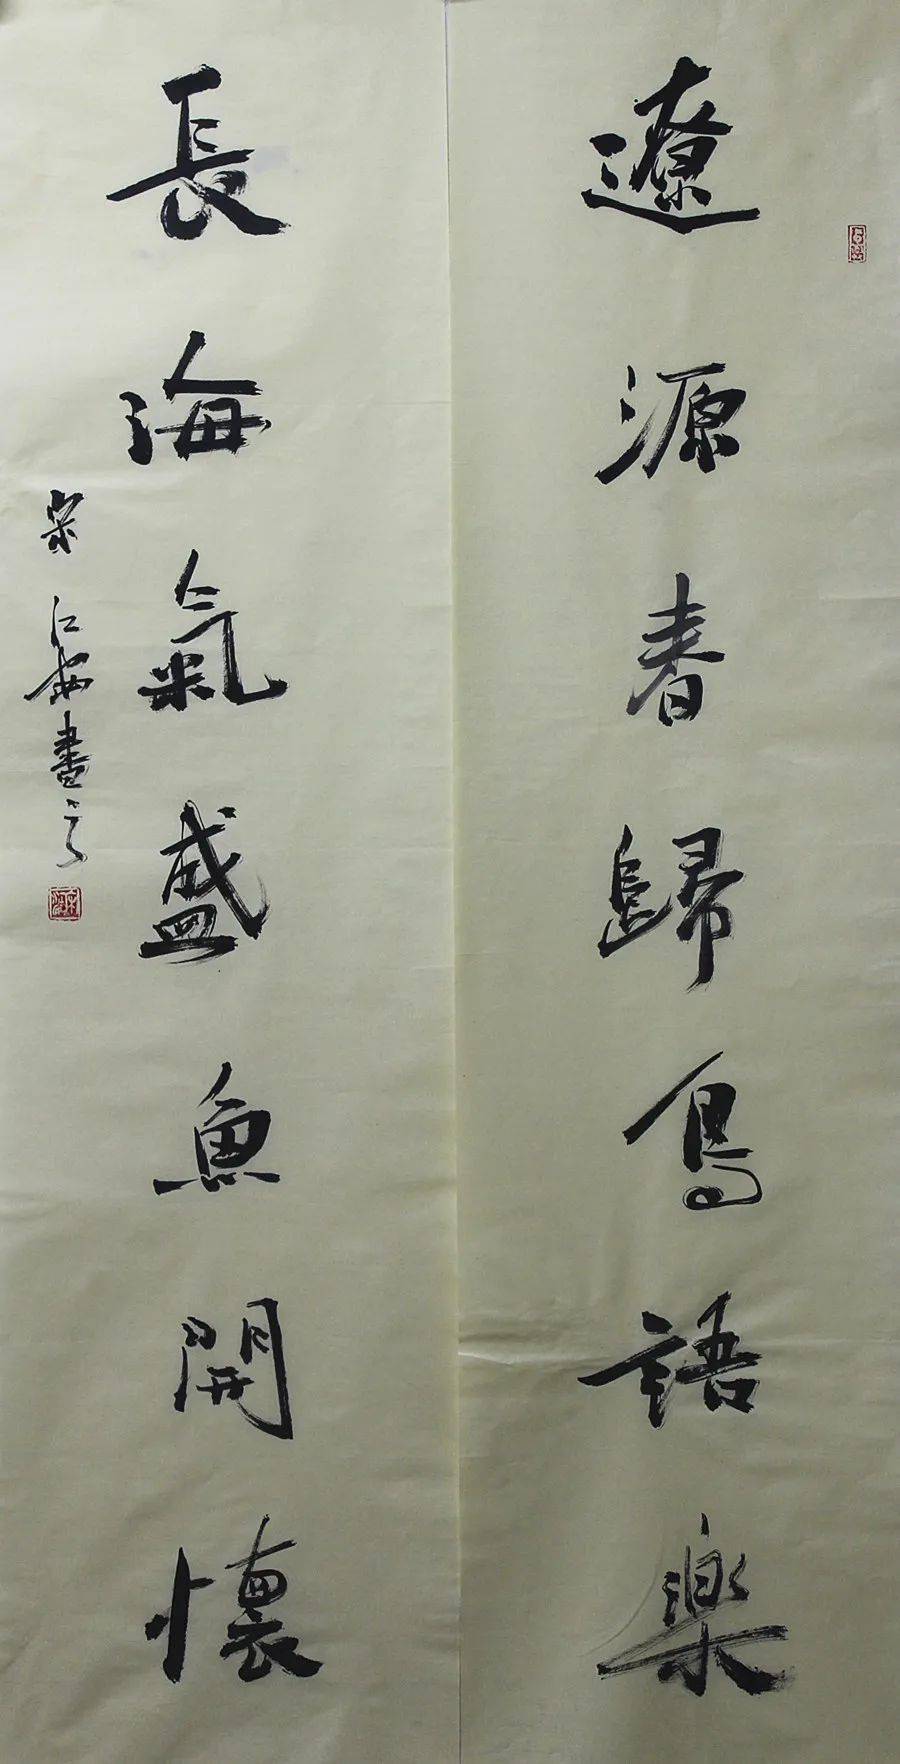 遼源春歸鳥語樂
長海氣盛魚開懷
宋江
書之